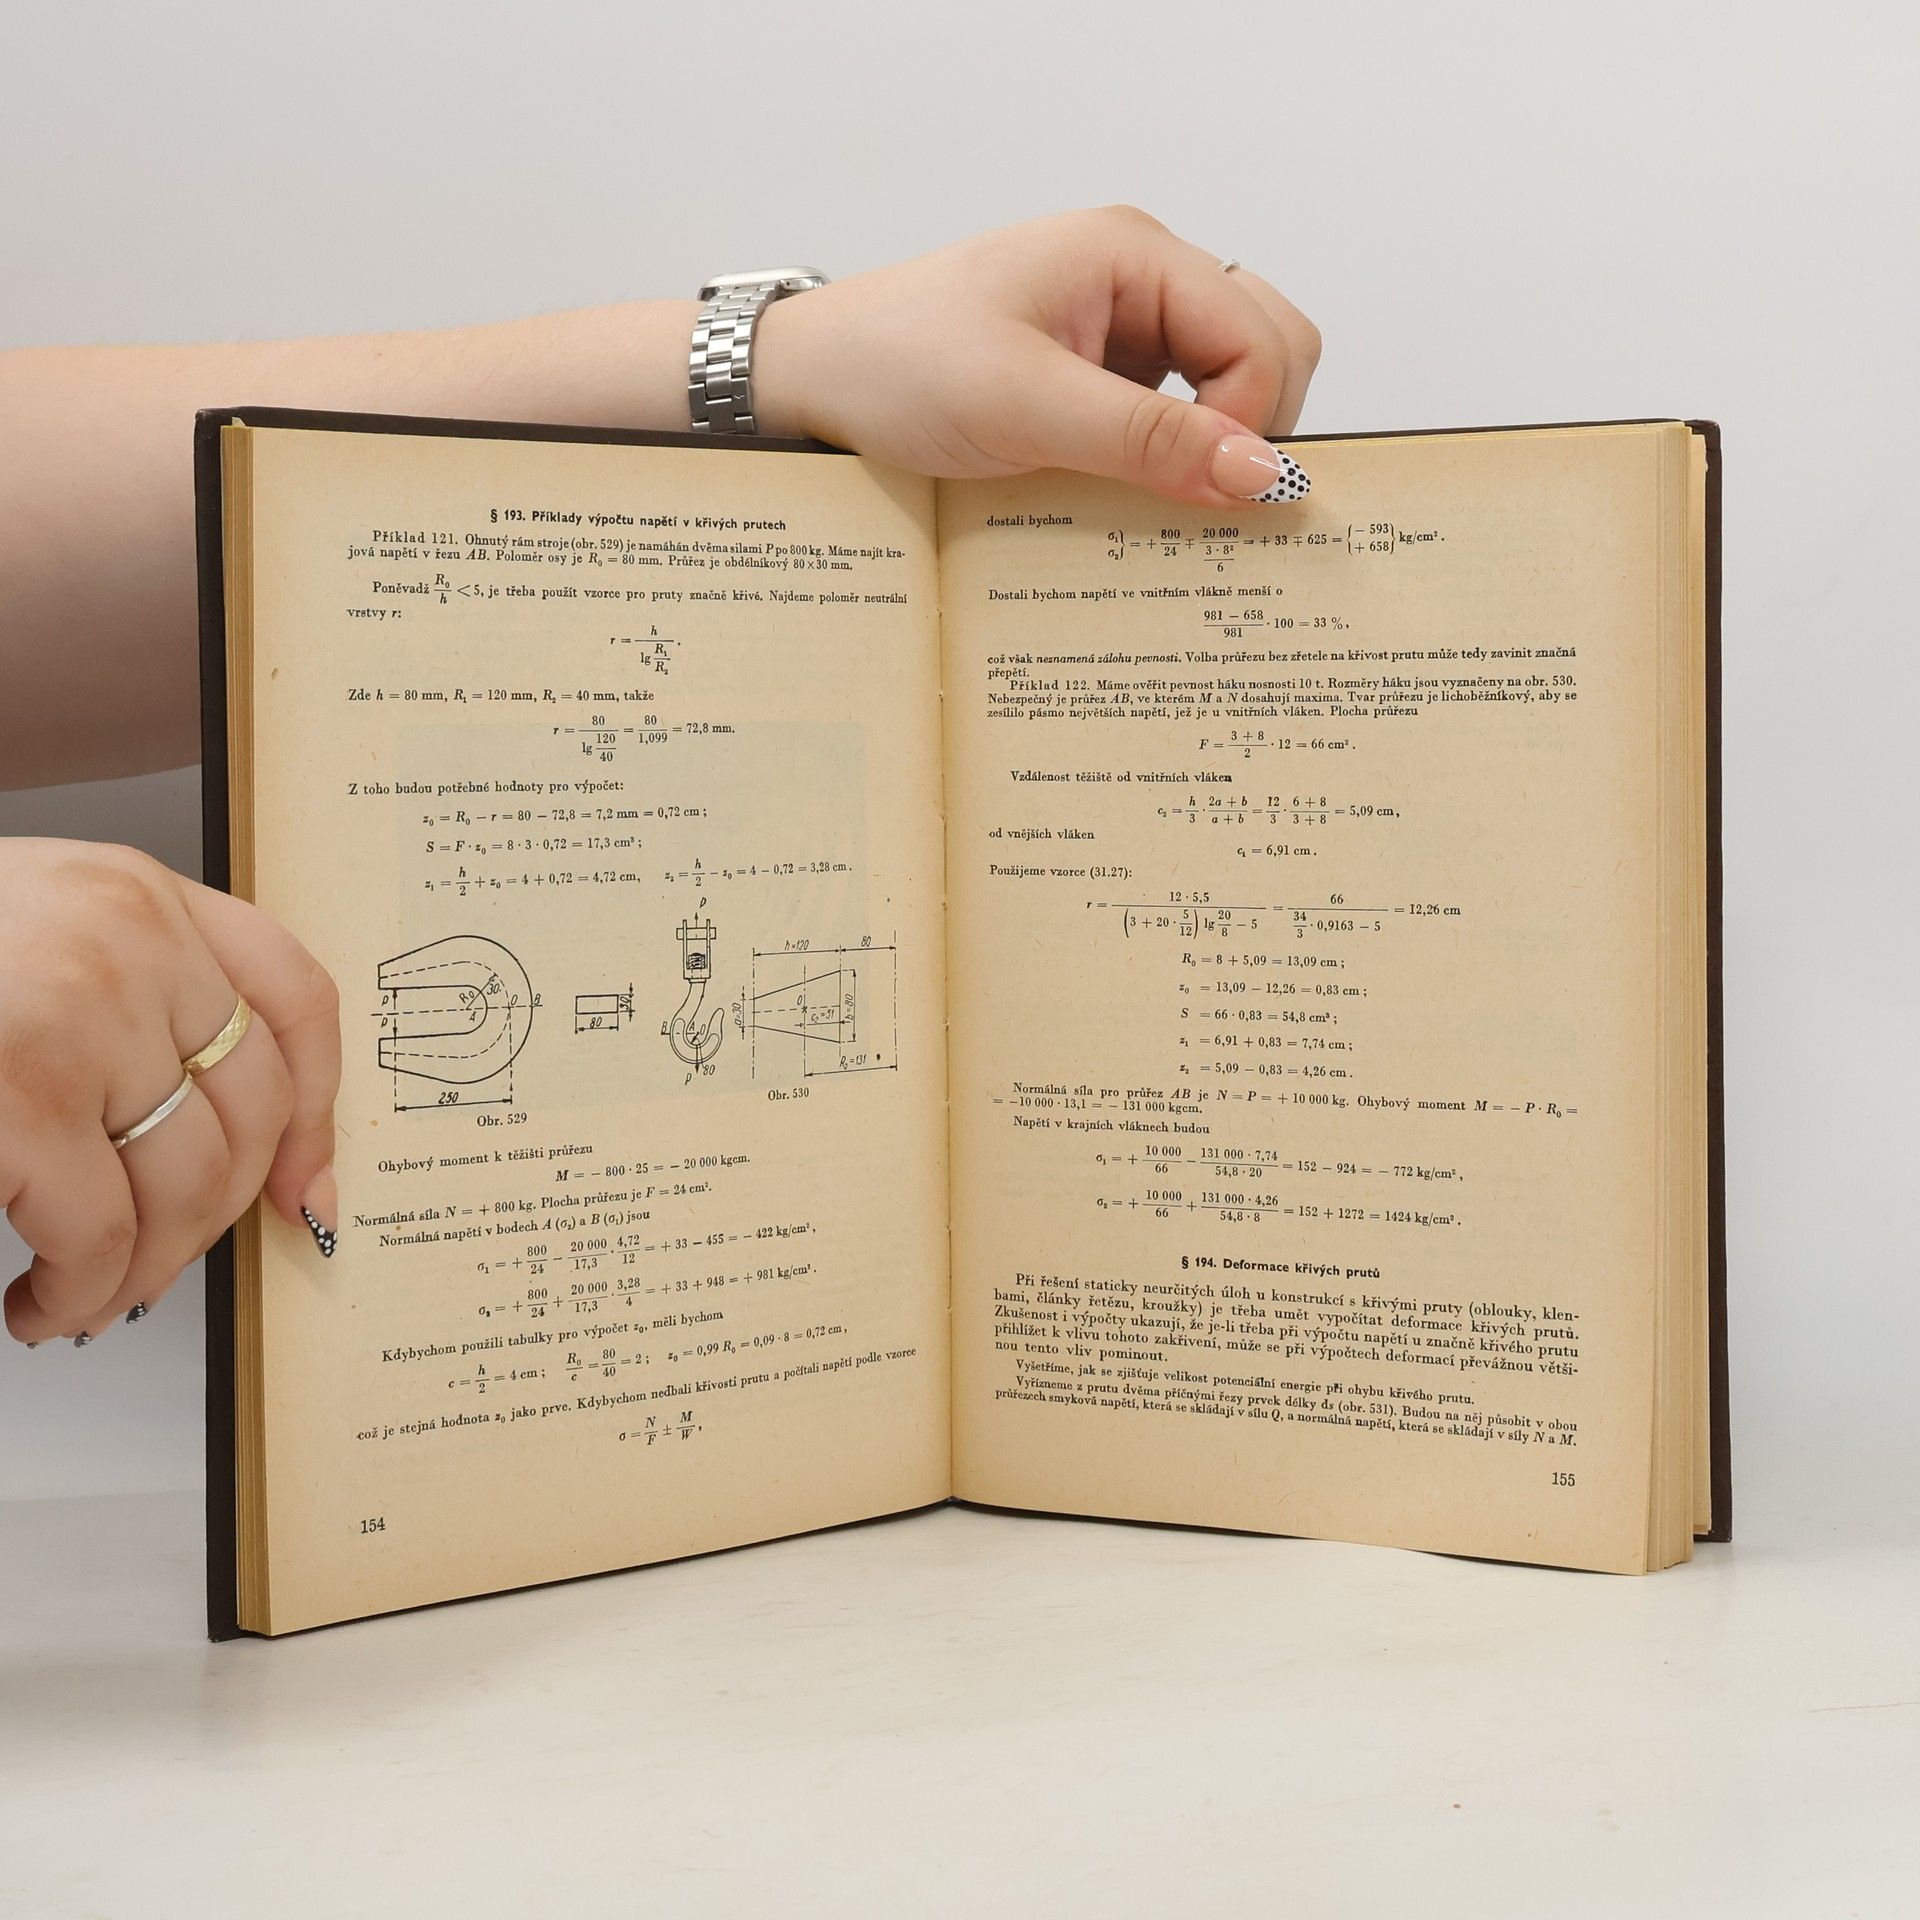 § 193. Příklady výpočtu napětí v křivých prutech
Příklad 121. Ohnutý rám stroje (obr. 529) je namáhán dvěma silami P po 800 kg. Máme najít kra-
jová napětí v řezu AB. Poloměr osy je R₀ = 80 mm. Průřez je obdélníkový 80×30 mm.
Poněvadž R₀/h < 5, je třeba použít vzorce pro pruty značně křivé. Najdeme poloměr neutrální
vrstvy r:
r = h / (lg R₁/R₂) .
Zde h = 80 mm, R₁ = 120 mm, R₂ = 40 mm, takže
r = 80 / (lg 120/40) = 80/1,099 = 72,8 mm.
Z toho budou potřebné hodnoty pro výpočet:
z₀ = R₀ − r = 80 − 72,8 = 7,2 mm = 0,72 cm ;
S = F · z₀ = 8 · 3 · 0,72 = 17,3 cm³ ;
z₁ = h/2 + z₀ = 4 + 0,72 = 4,72 cm, z₂ = h/2 − z₀ = 4 − 0,72 = 3,28 cm .
P
P
R₀
30
A
O
B
250
80
30
Obr. 529
P
B
A
O
80
P
h=120
80
a=30
O
c₂=51
b=80
R₀=131
Obr. 530
Ohybový moment k těžišti průřezu
M = − 800 · 25 = − 20 000 kgcm.
Normálná síla N = + 800 kg. Plocha průřezu je F = 24 cm².
Normálná napětí v bodech A (σ₂) a B (σ₁) jsou
σ₁ = + 800/24 − 20 000/17,3 · 4,72/12 = + 33 − 455 = − 422 kg/cm² ,
σ₂ = + 800/24 + 20 000/17,3 · 3,28/4 = + 33 + 948 = + 981 kg/cm² .
Kdybychom použili tabulky pro výpočet z₀, měli bychom
c = h/2 = 4 cm ; R₀/c = 80/40 = 2 ; z₀ = 0,99 R₀ = 0,09 · 8 = 0,72 cm ,
což je stejná hodnota z₀ jako prve. Kdybychom nedbali křivosti prutu a počítali napětí podle vzorce
σ = N/F ± M/W ,
154
dostali bychom
σ₁ σ₂} = + 800/24 ∓ 20 000 / (3 · 8²/6) = + 33 ∓ 625 = {− 593 + 658} kg/cm² .
Dostali bychom napětí ve vnitřním vlákně menší o
(981 − 658)/981 · 100 = 33 %,
což však neznamená zálohu pevnosti. Volba průřezu bez zřetele na křivost prutu může tedy zavinit značná
přepětí.
Příklad 122. Máme ověřit pevnost háku nosnosti 10 t. Rozměry háku jsou vyznačeny na obr. 530.
Nebezpečný je průřez AB, ve kterém M a N dosahují maxima. Tvar průřezu je lichoběžníkový, aby se
zesílilo pásmo největších napětí, jež je u vnitřních vláken. Plocha průřezu
F = (3 + 8)/2 · 12 = 66 cm² .
Vzdálenost těžiště od vnitřních vláken
c₂ = h/3 · (2a + b)/(a + b) = 12/3 · (6 + 8)/(3 + 8) = 5,09 cm,
od vnějších vláken
c₁ = 6,91 cm .
Použijeme vzorce (31.27):
r = 12 · 5,5 / ((3 + 20 · 5/12) lg 20/8 − 5) = 66 / (34/3 · 0,9163 − 5) = 12,26 cm
R₀ = 8 + 5,09 = 13,09 cm ;
z₀ = 13,09 − 12,26 = 0,83 cm ;
S = 66 · 0,83 = 54,8 cm³ ;
z₁ = 6,91 + 0,83 = 7,74 cm ;
z₂ = 5,09 − 0,83 = 4,26 cm .
Normálná síla pro průřez AB je N = P = + 10 000 kg. Ohybový moment M = − P · R₀ =
= −10 000 · 13,1 = − 131 000 kgcm.
Napětí v krajních vláknech budou
σ₁ = + 10 000/66 − 131 000 · 7,74/54,8 · 20 = 152 − 924 = − 772 kg/cm² ,
σ₂ = + 10 000/66 + 131 000 · 4,26/54,8 · 8 = 152 + 1272 = 1424 kg/cm² .
§ 194. Deformace křivých prutů
Při řešení staticky neurčitých úloh u konstrukcí s křivými pruty (oblouky, klen-
bami, články řetězu, kroužky) je třeba umět vypočítat deformace křivých prutů.
Zkušenost i výpočty ukazují, že je-li třeba při výpočtu napětí u značně křivého prutu
přihlížet k vlivu tohoto zakřivení, může se při výpočtech deformací převážnou větši-
nou tento vliv pominout.
Vyšetříme, jak se zjišťuje velikost potenciální energie při ohybu křivého prutu.
Vyřízneme z prutu dvěma příčnými řezy prvek délky ds (obr. 531). Budou na něj působit v obou
průřezech smyková napětí, která se skládají v sílu Q, a normálná napětí, která se skládají v síly N a M.
155